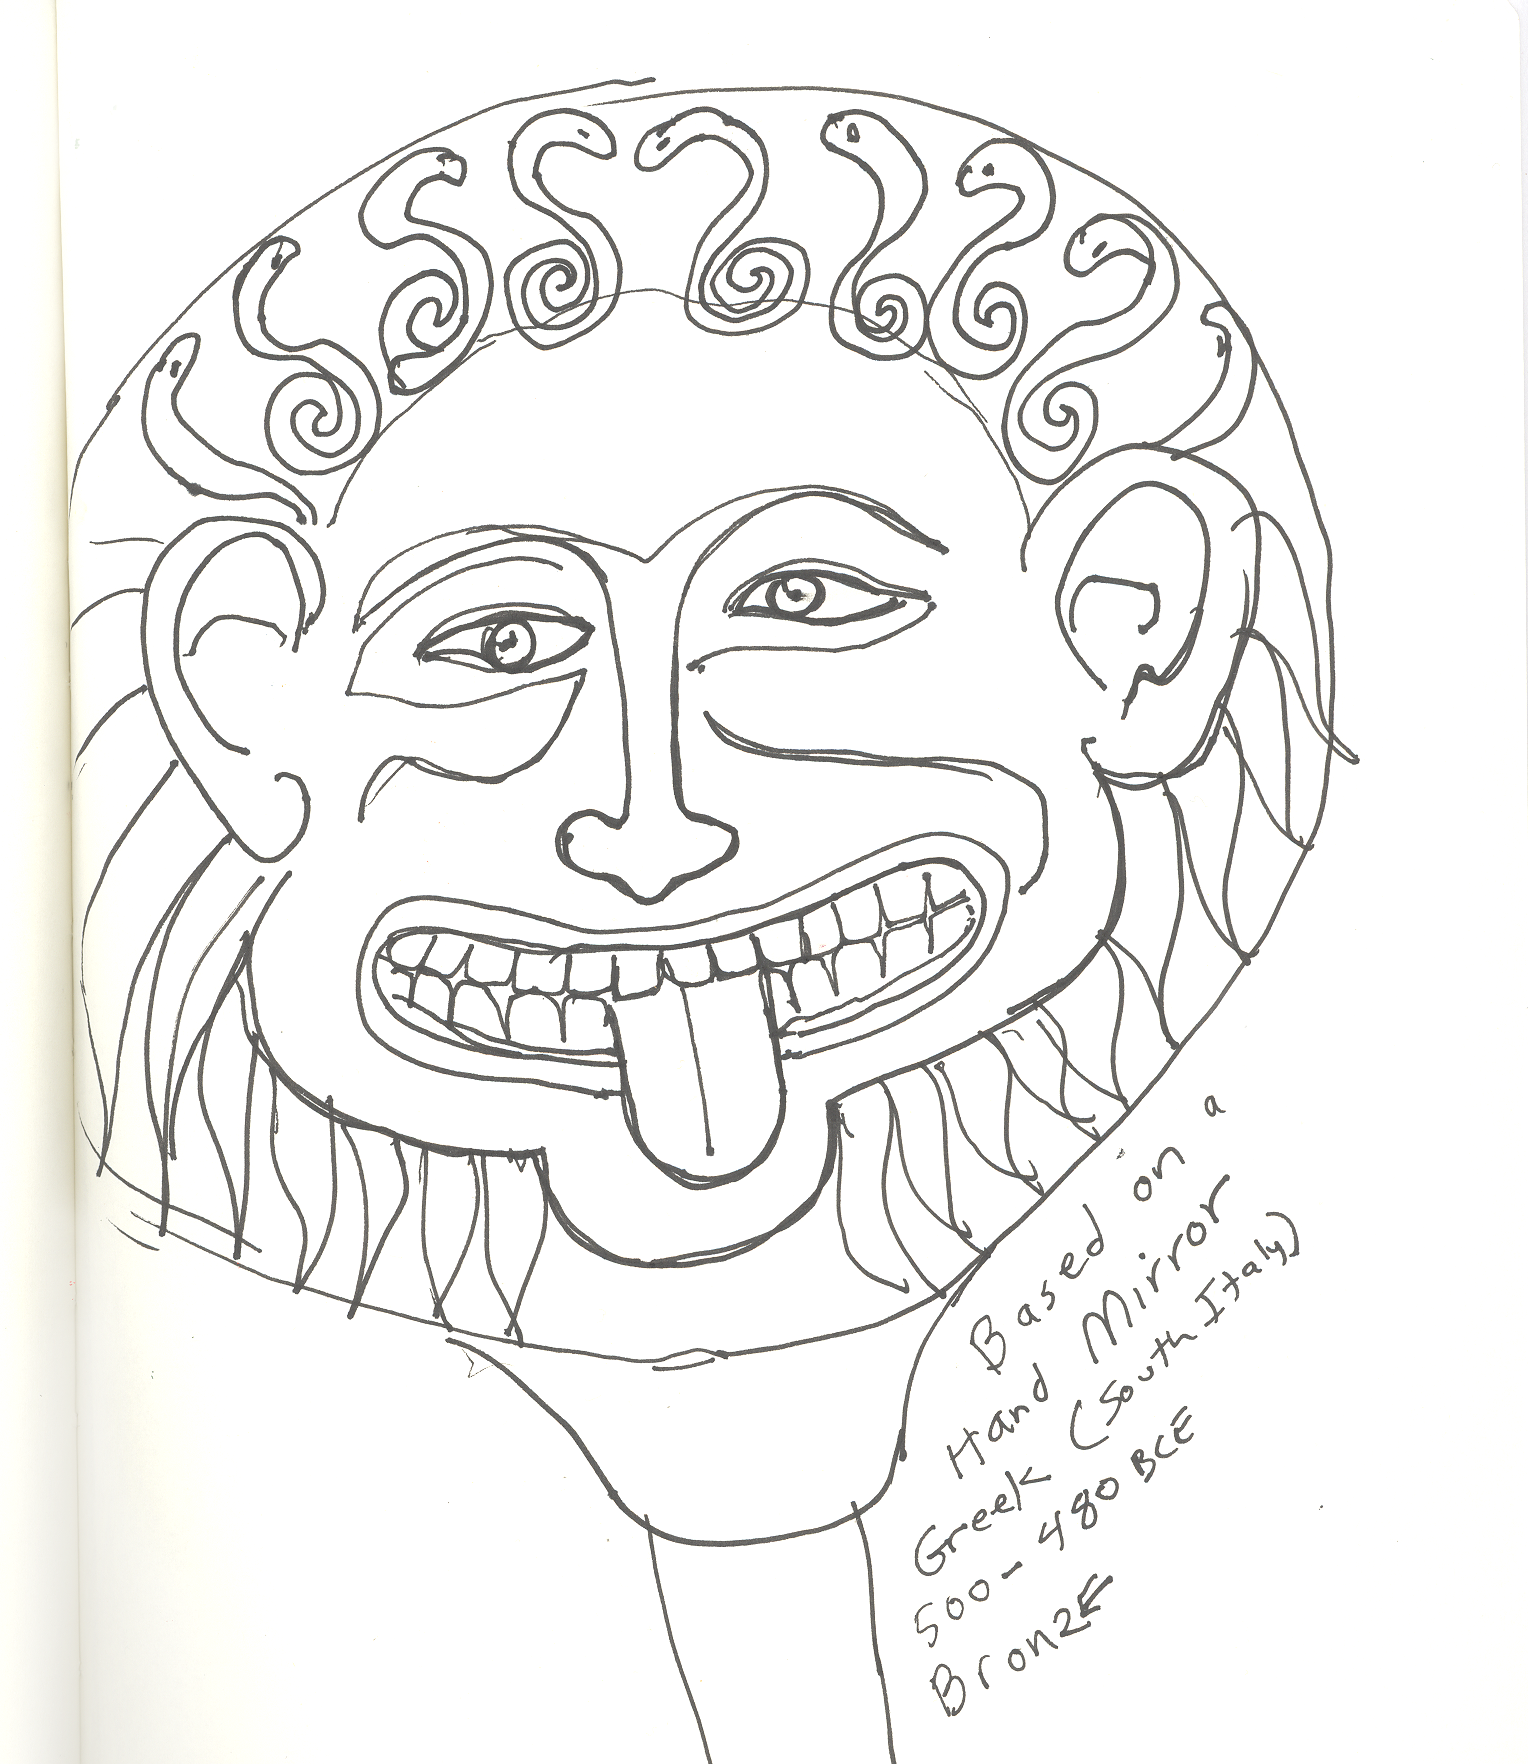 Based on a
Hand Mirror
Greek (South Italy)
500-480 BCE
BronzE